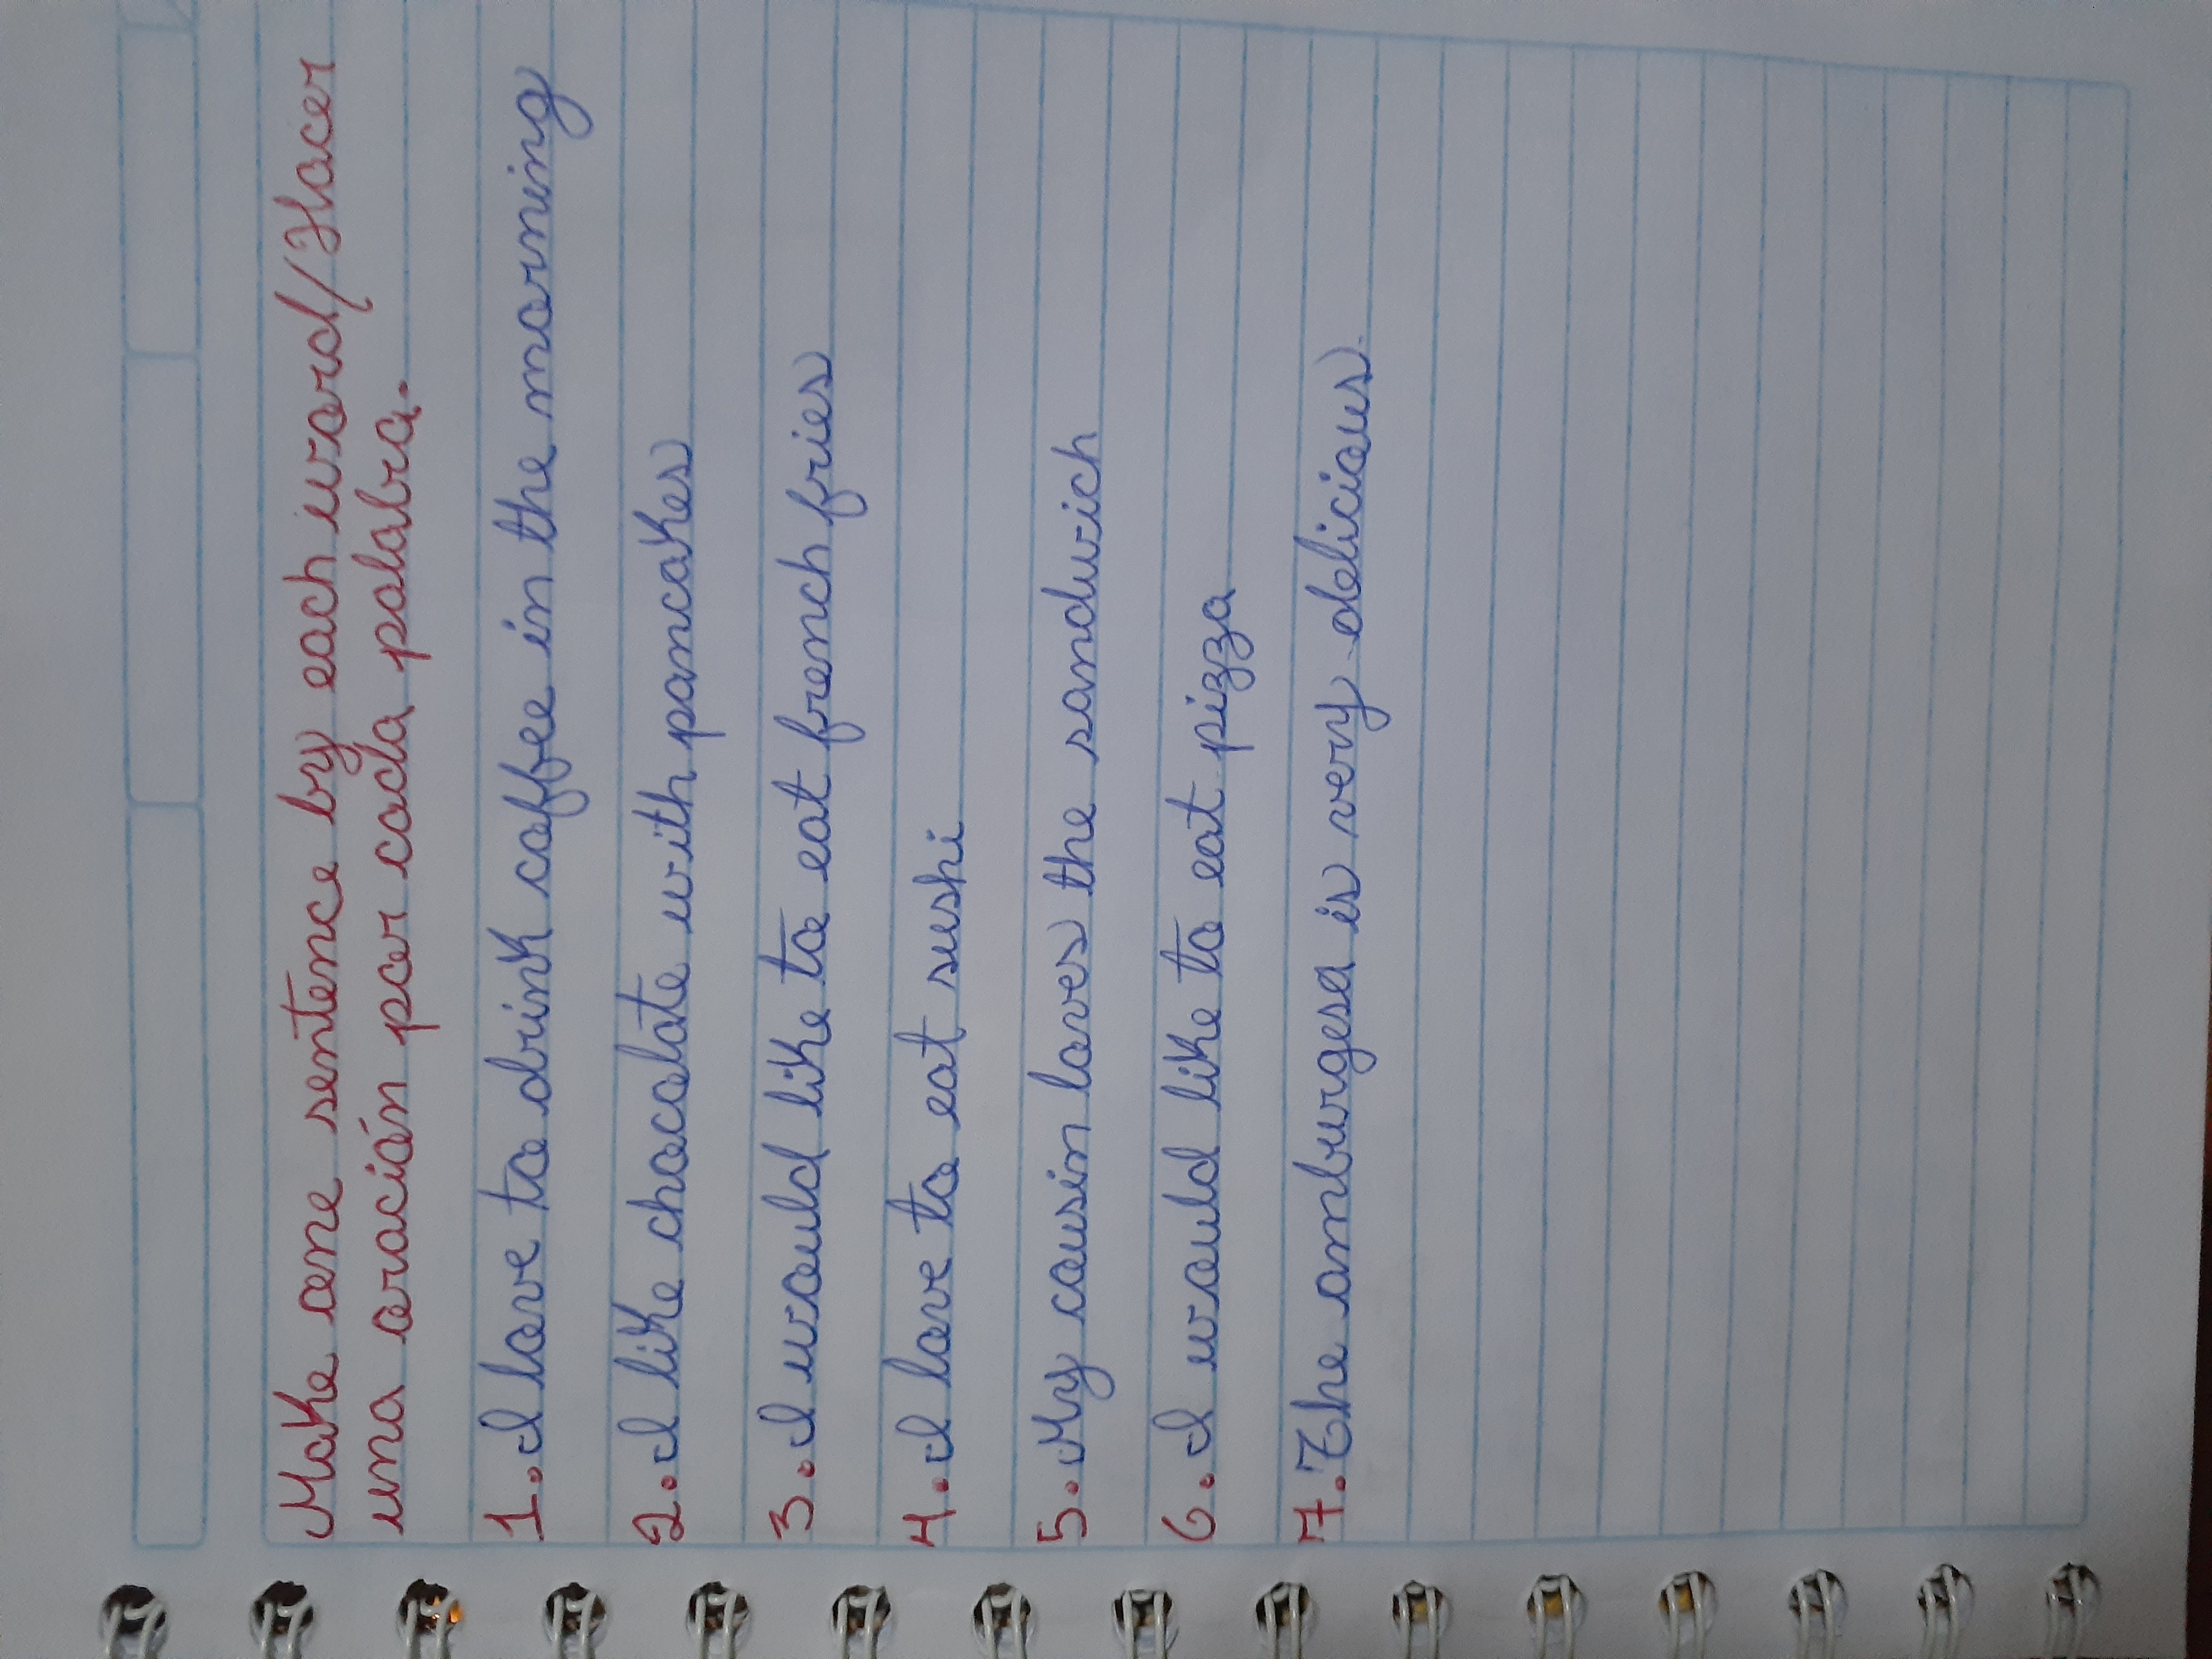 Make one sentence by each word/Hacer
una oración por cada palabra.
1. I love to drink coffee in the morning
2. I like chocolate with pancakes
3. I would like to eat french fries
4. I love to eat sushi
5. My cousin loves the sandwich
6. I would like to eat pizza
7. The amburgesa is very delicious